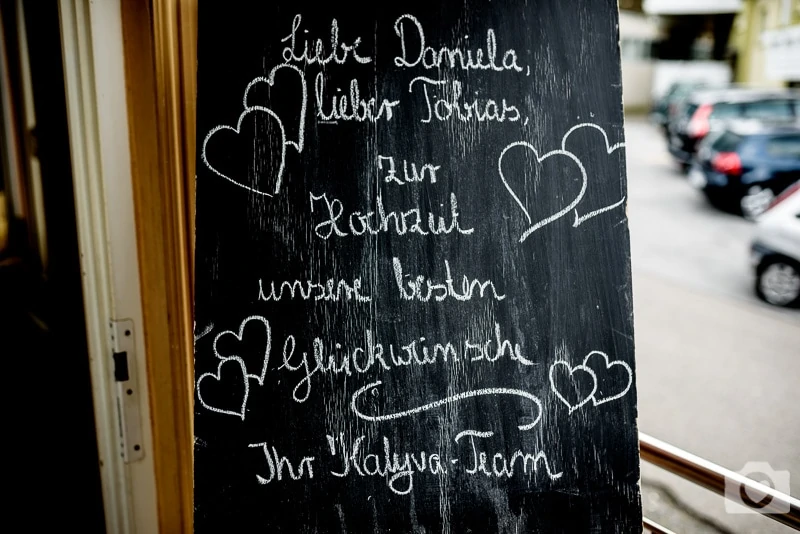 Liebe Daniela,
lieber Tobias,
zur
Hochzeit
unsere besten
Glückwünsche
Ihr Kalyva-Team